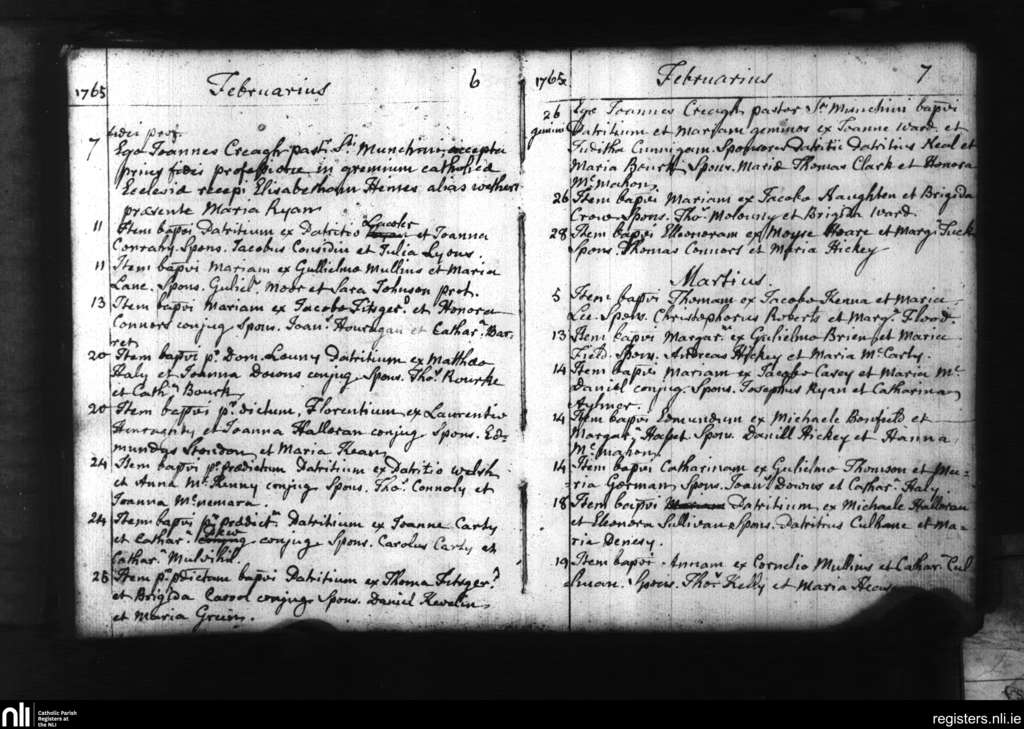 1765 Februarius 6
fidei prof.
7 Ego Joannes Creagh past.r S.ti Munchini, accepta
prius fidei professione in gremium catholicae
Ecclesia recepi Elisabetham Himes alias
præsente Maria Ryan
11 Item bapvi Patritium ex Patritio Lawler et Joanna
Conrahy. Spons. Jacobus Considin et Julia Lyons.
11 Item bapvi Mariam ex Gullielmo Mullins et Maria
Lane. Spons. Guliel. Moor et Sara Johnson prot.
13 Item bapvi Mariam ex Jacobo Fitzger.d et Honora
Connors conjug Spons. Joan. Hourigan et Cathar.a Bar
ret
20 Item bapvi p.r Dom. Patritium ex Matthæo
Haly et Joanna Downs conjug Spons. Tho.s Rourke
et Cath.a Bourk
20 Item bapvi p.r dictum, Florentium ex Laurentio
et Joanna Halloran conjug Spons. Ed-
mundus et Maria Kean
24 Item bapvi p.r prædictum Patritium ex Patritio Welsh
et Anna Mc.Kenny conjug Spons. Tho.s Connoly et
Joanna Mc.nemara.
24 Item bapvi p.r prædict.m Patritium ex Joanne Carty
et Cathar.a conjug Spons. Carolus Carty et
Cathar.a Mulvihil.
25 Item p.r pdictum bapvi Patritium ex Thoma Fitzger.d
et Brigida Carrol conjug Spons. Daniel
et Maria
1765 Februarius 7
26 Ego Joannes Creagh pastor S.ti Munchini bapvi
gemini Patritium et Mariam geminos ex Joanne Ward et
Juditha Cunnigam Sponsores Patritii Patritius Neal et
Maria Bourk Spons. Mariæ Thomas Clark et Honora
Mc.Mahon,
26 Item bapvi Mariam ex Jacobo Naughten et Brigida
Crow Spons. Tho.s Molonny et Brigida Ward.
28 Item bapvi Elleonoram ex Moyse Hoare et Marg.a Tuck
Spons Thomas Connors et Maria Hickey
Martius.
5 Item bapvi Thomam ex Jacobo Kenna et Maria
Lee. Spons. Christophorus Roberts et Marg.a Flood.
13 Item bapvi Margar.m ex Gulielmo Brien et Maria
Field. Spons. Andreas Hickey et Maria Mc.Carty.
14 Item bapvi Mariam ex Jacobo Casey et Maria Mc.
Daniel conjug Spons. Josephus Ryan et Catharina
Aylmer.
14 Item bapvi Edmundum ex Michaele Bonfield et
Margar.a Spons. Daniell Hickey et Hanna
Mc.Mahon,
14 Item bapvi Catharinam ex Gulielmo Thomson et Ma-
ria German Spons. Joan.s Downs et Cathar.a Haly
18 Item bapvi Patritium ex Michaele Halloran
et Eleonora Sullivan Spons. Patritius Culhane et Ma
ria Denesy.
19 Item bapvi Annam ex Cornelio Mullins et Cathar.a Cul
Spons. Tho.s Kelly et Maria
nli Catholic Parish
Registers at
the NLI
registers.nli.ie